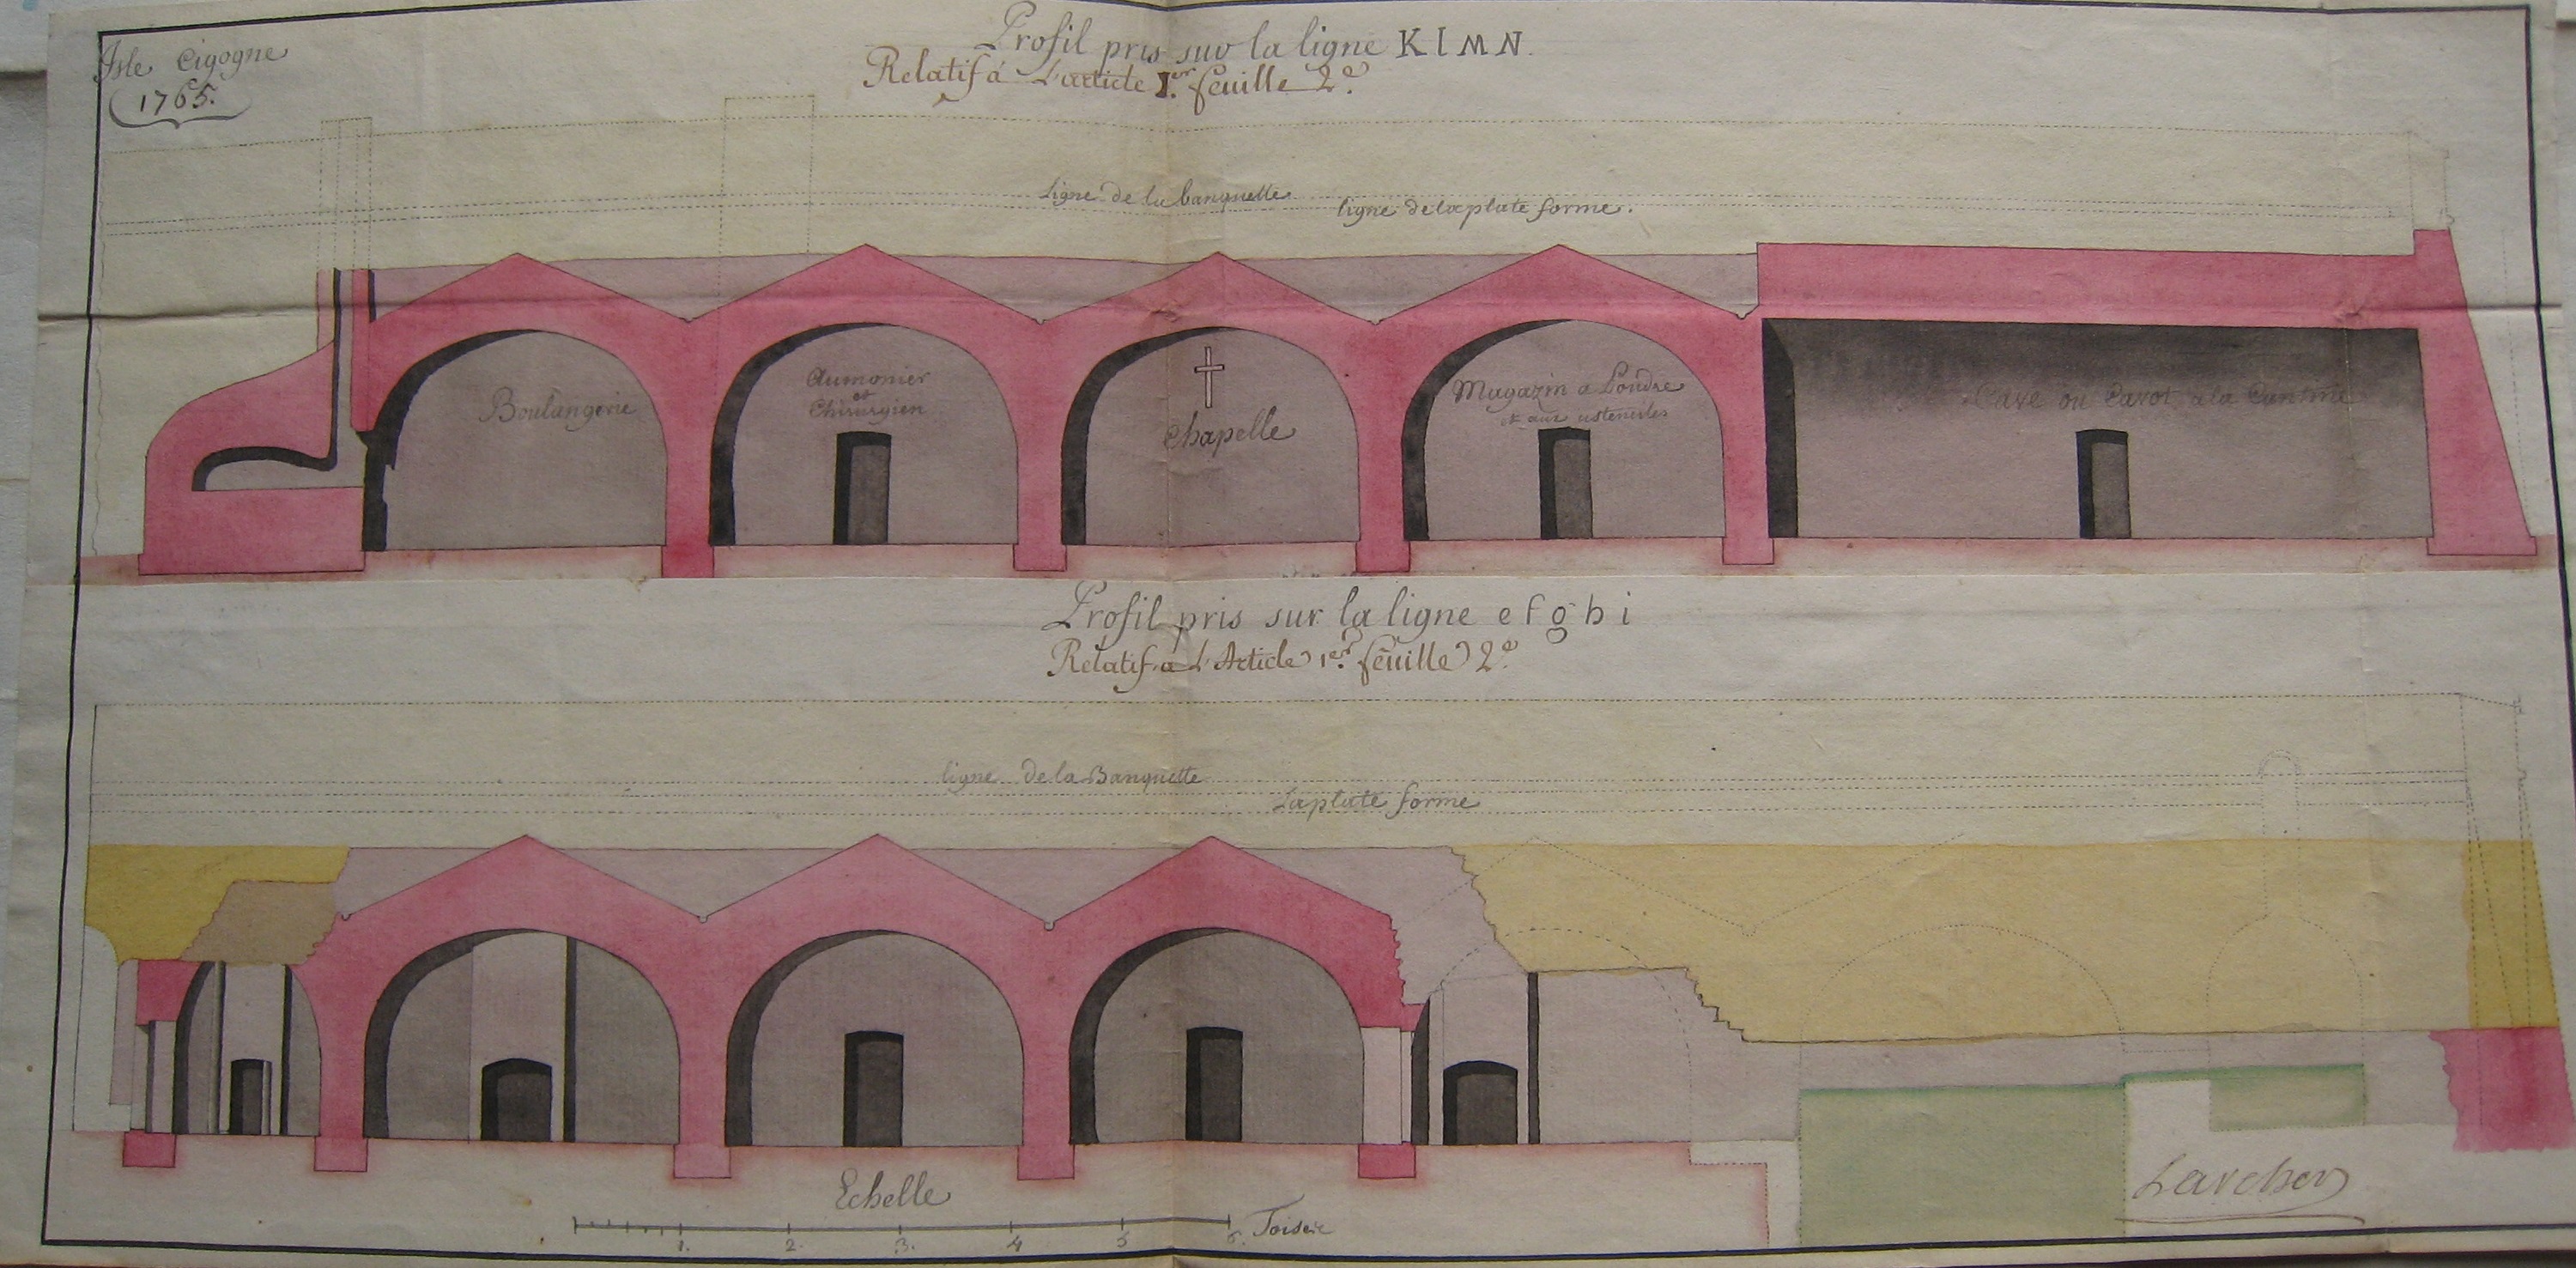 Isle Cigogne
1765.
Profil pris sur la ligne K l M N.
Relatif á L'article 1.er feuille 2.e
ligne de la banquette
ligne de la plate forme.
Boulangerie
Aumonier
et
Chirurgien
Chapelle
Magazin a Poudre
et aux ustenciles
Cave ou Cavot a la Cantine
Profil pris sur la ligne e f g h i
Relatif á L'Article 1.er feuille 2.e
ligne de la Banquette
La plate forme
Echelle
1. 2. 3. 4 5 6. Toises
Larcher